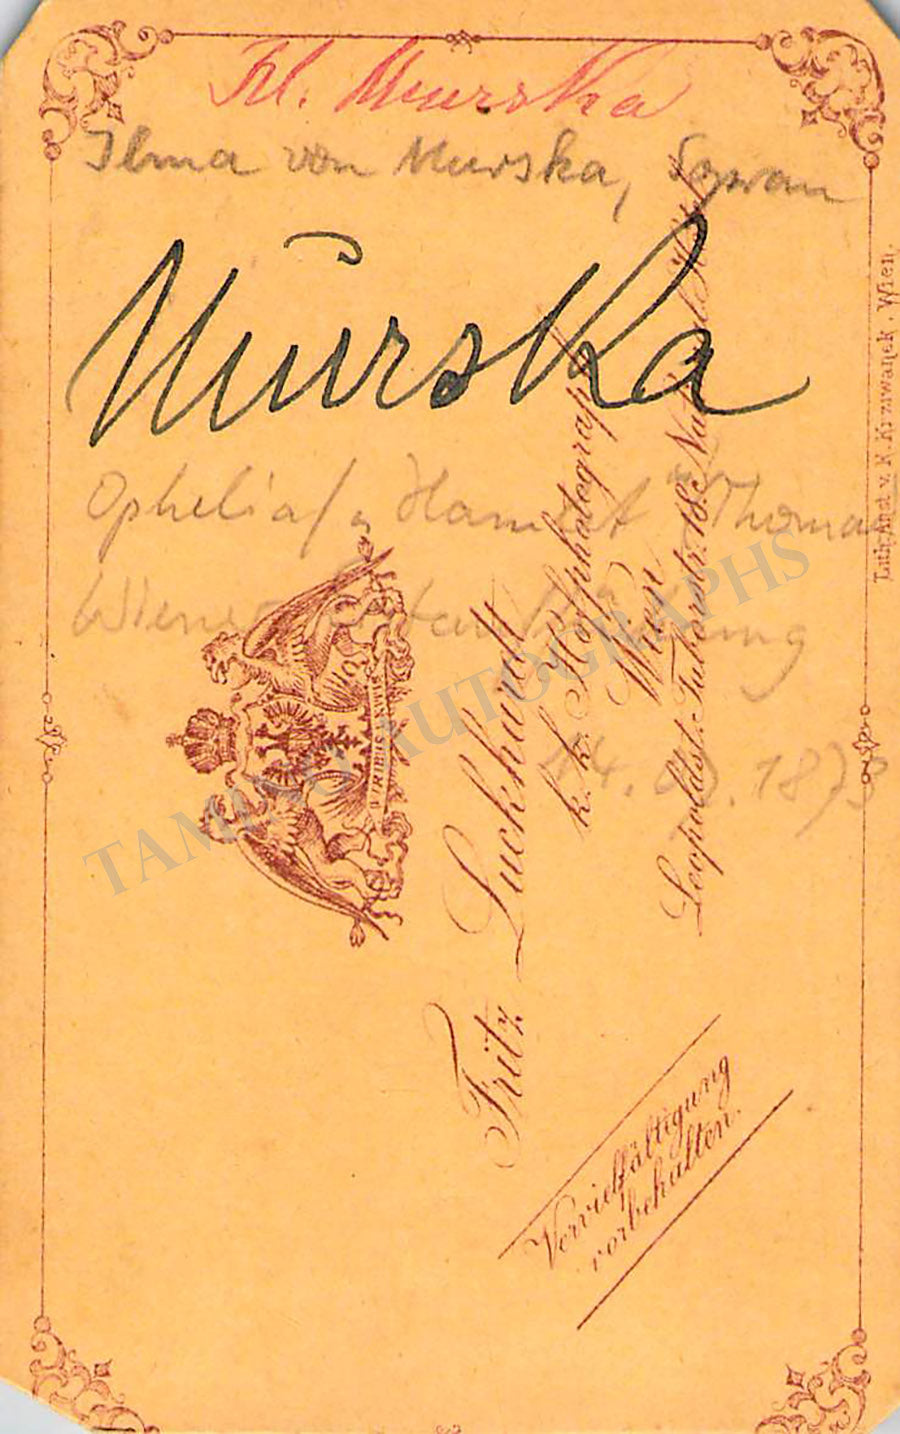 Frl. Murska
Ilma von Murska, Sopran
Murska
Ophelia / Hamlet Thomas
Wiener
14. 1873
VIRIBUS UNITIS
Fritz Luckhardt
k. k. Hof-Photograph
Wien
Leopoldst. Taborstr. 18. National Hôtel
Vervielfältigung
vorbehalten.
Lith. Anst. v. K. Krziwanek. Wien.
TAMINO AUTOGRAPHS